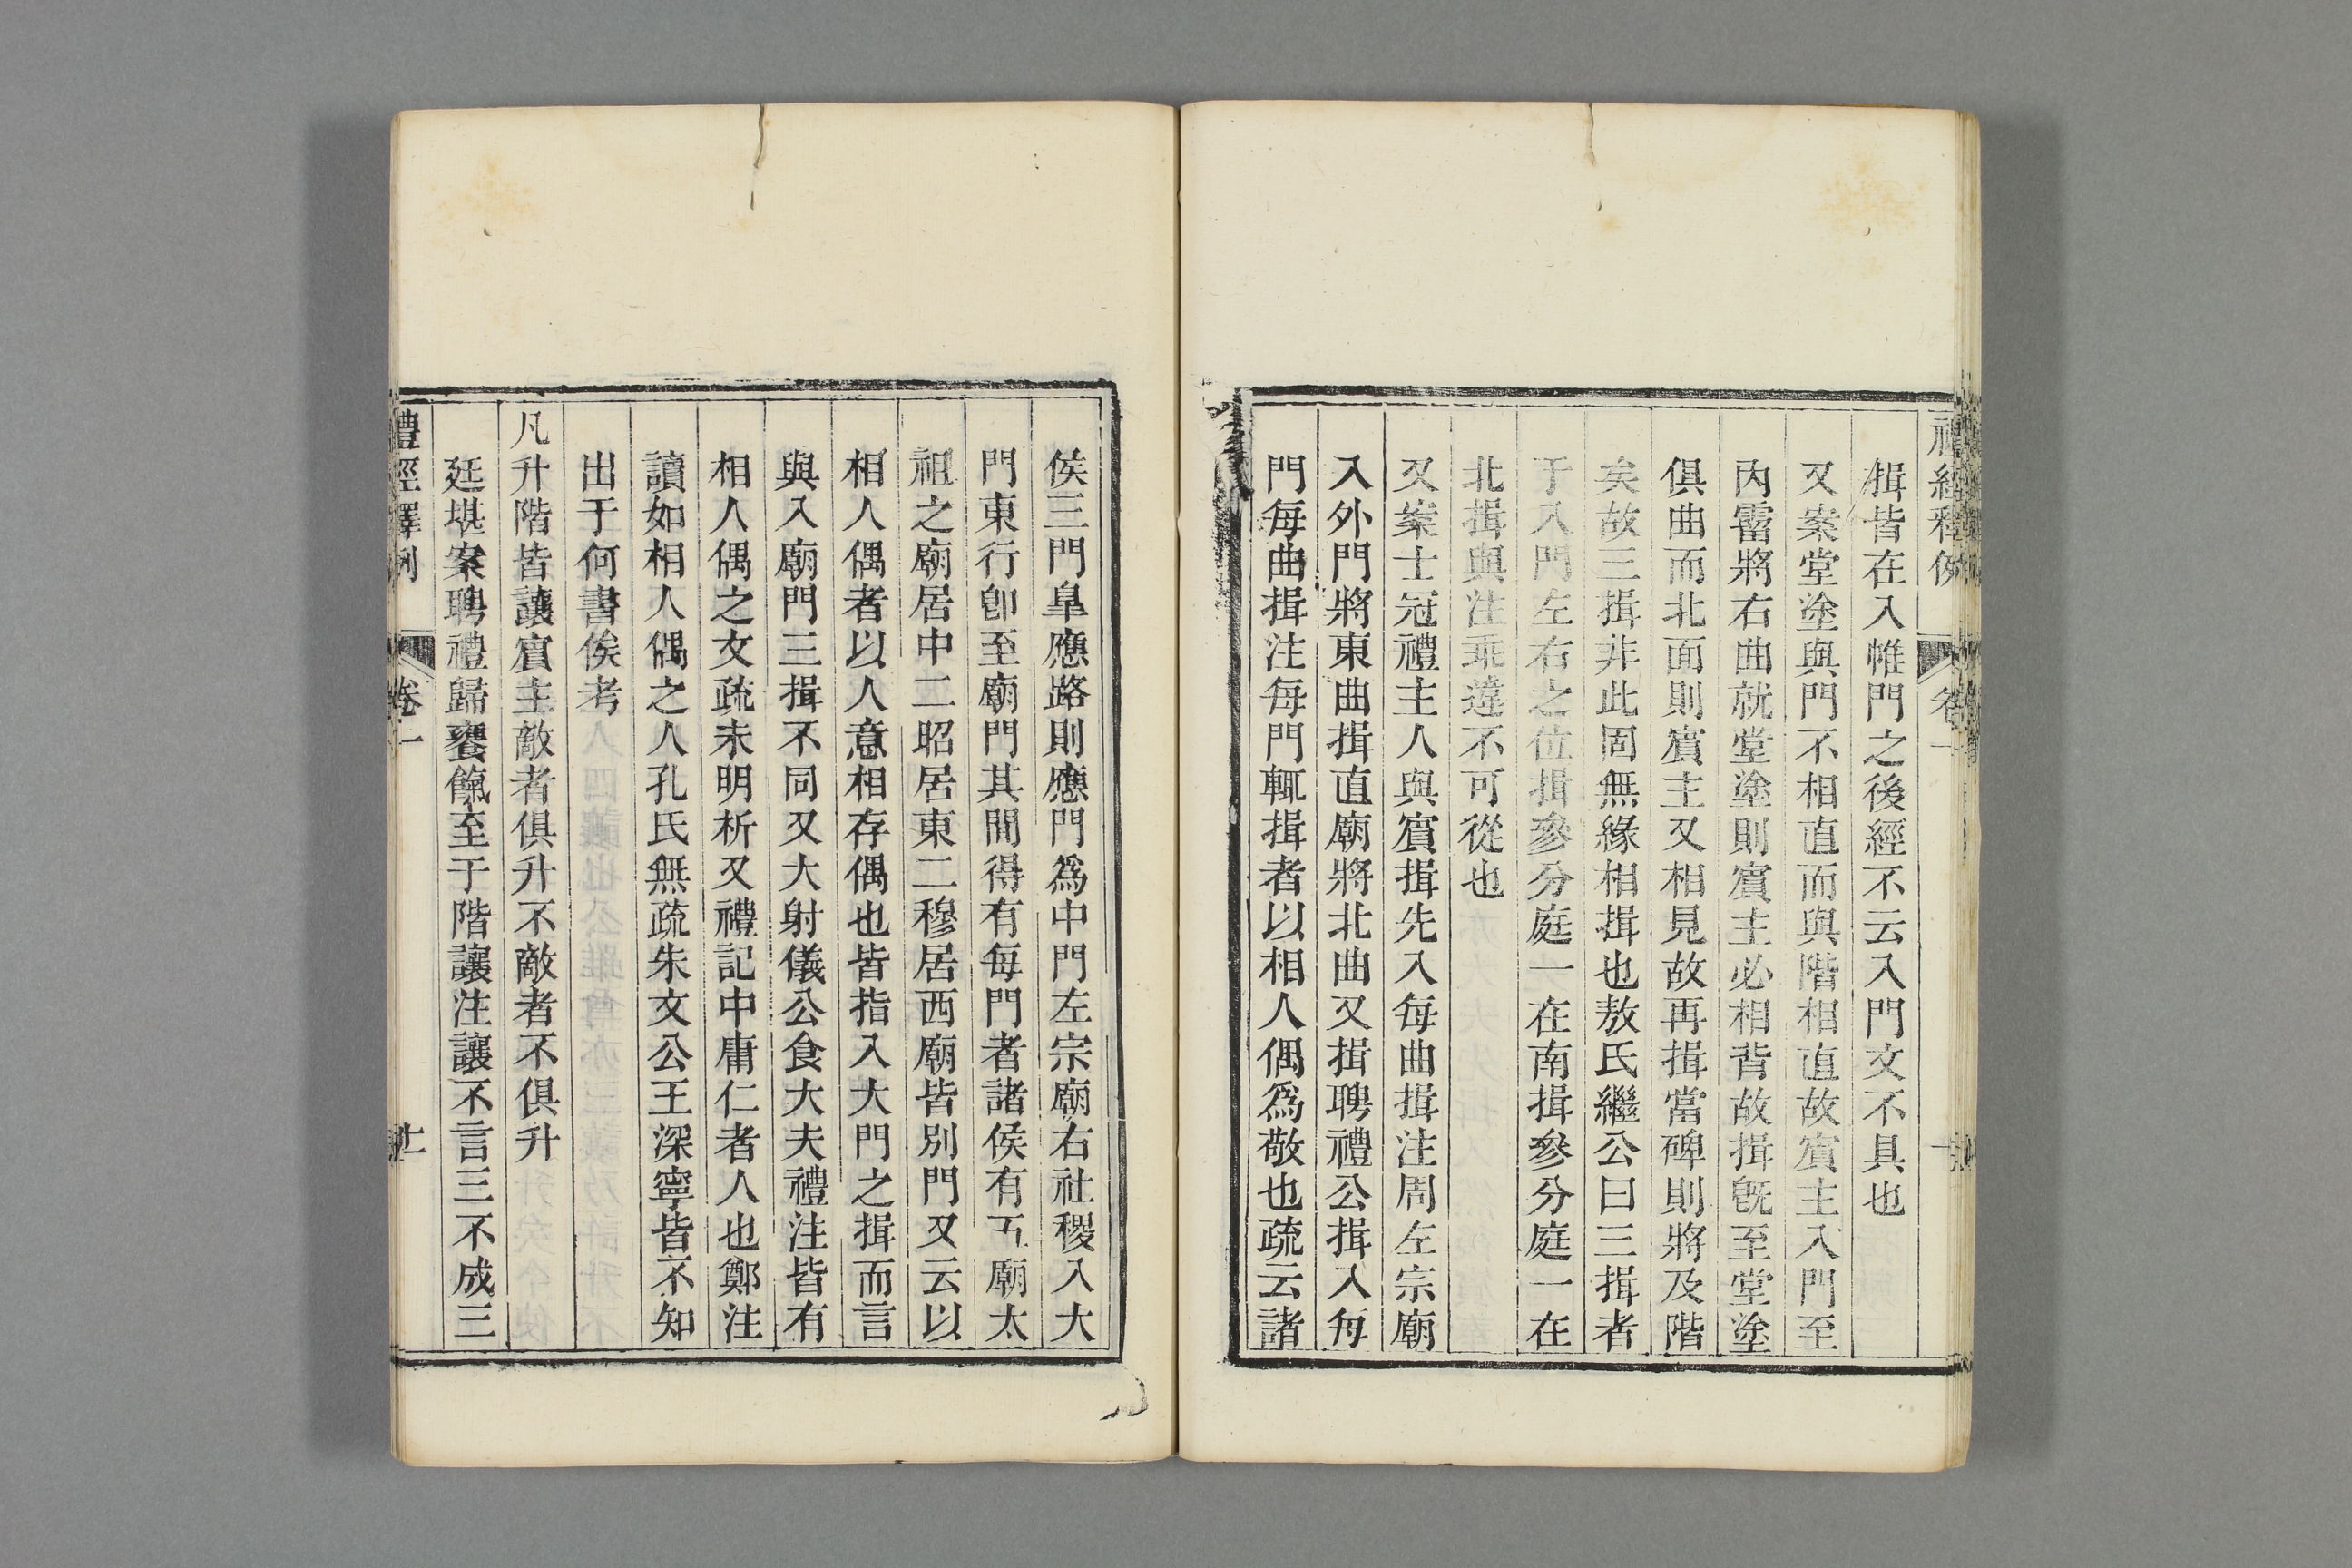 禮經釋例 卷一
揖皆在入帷門之後經不云入門文不具也
又案堂塗與門不相直而與階相直故賓主入門至
內霤將右曲就堂塗則賓主必相背故揖旣至堂塗
俱曲而北面則賓主又相見故再揖當碑則將及階
矣故三揖非此固無緣相揖也敖氏繼公曰三揖者
于入門左右之位揖參分庭一在南揖參分庭一在
北揖與注乖違不可從也
又案士冠禮主人與賓揖先入每曲揖注周左宗廟
入外門將東曲揖直廟將北曲又揖聘禮公揖入每
門每曲揖注每門輒揖者以相人偶爲敬也疏云諸
侯三門皐應路則應門爲中門左宗廟右社稷入大
門東行卽至廟門其間得有每門者諸侯有五廟太
祖之廟居中二昭居東二穆居西廟皆別門又云以
相人偶者以人意相存偶也皆指入大門之揖而言
與入廟門三揖不同又大射儀公食大夫禮注皆有
相人偶之文疏未明析又禮記中庸仁者人也鄭注
讀如相人偶之人孔氏無疏朱文公王深寧皆不知
出于何書俟考
凡升階皆讓賓主敵者俱升不敵者不俱升
廷堪案聘禮歸饔餼至于階讓注讓不言三不成三
禮經釋例 卷一